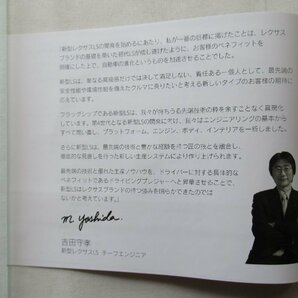 「新型レクサスLSの開発を始めるにあたり、私が一番の目標に掲げたことは、レクサス
ブランドの基礎を築いた初代LSが成し遂げたように、お客様のベネフィットを
明確にした上で、自動車の進化というものを加速させることでした。
新型LSは、単なる高級感だけでは決して満足しない、責任ある一個人として、最先端の
安全性能や環境性能を備えたクルマに乗りたいと考える新しいタイプのお客様の期待に
フラッグシップである新型LSには、我々が持ちうる先端技術の粋を余すことなく具現化
しています。第4世代となる新型LSの開発に際し、我々はエンジニアリングの基本から
すべて問い直し、プラットフォーム、エンジン、ボディ、インテリアを一新しました。
さらに新型LSは、最先端の技術と豊かな経験を持つ匠の技とを融合し、
徹底的な見直しを行った新しい生産システムにより作り上げられます。
最先端の技術と優れた生産ノウハウを、ドライバーに対する具体的な
ベネフィットであるドライビングプレジャーへと昇華させることで、
新型LSはレクサスブランドの持つ強みを明らかにできたのでは
ないかと考えています。」
M. Yoshida.
吉田守孝
新型レクサスLS チーフエンジニア